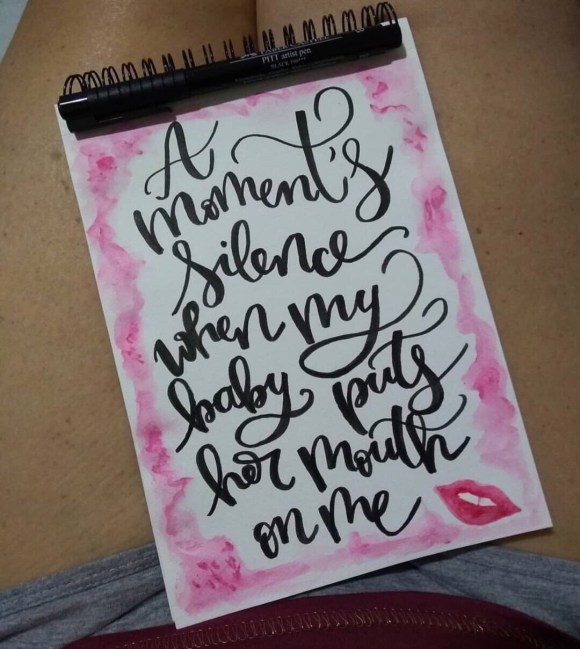 PITT artist pen
A
moment's
silence
when my
baby puts
her mouth
on me